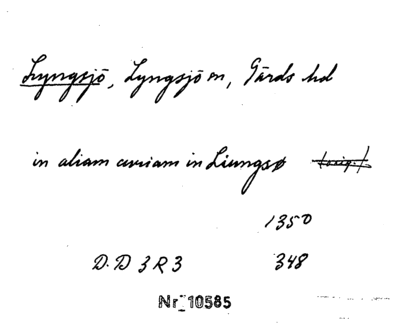 Lyngsjö, Lyngsjö sn, Gärds hd
in aliam curiam in Liungsø (orig.)
1350
D.D 3 R 3 348
Nr 10585